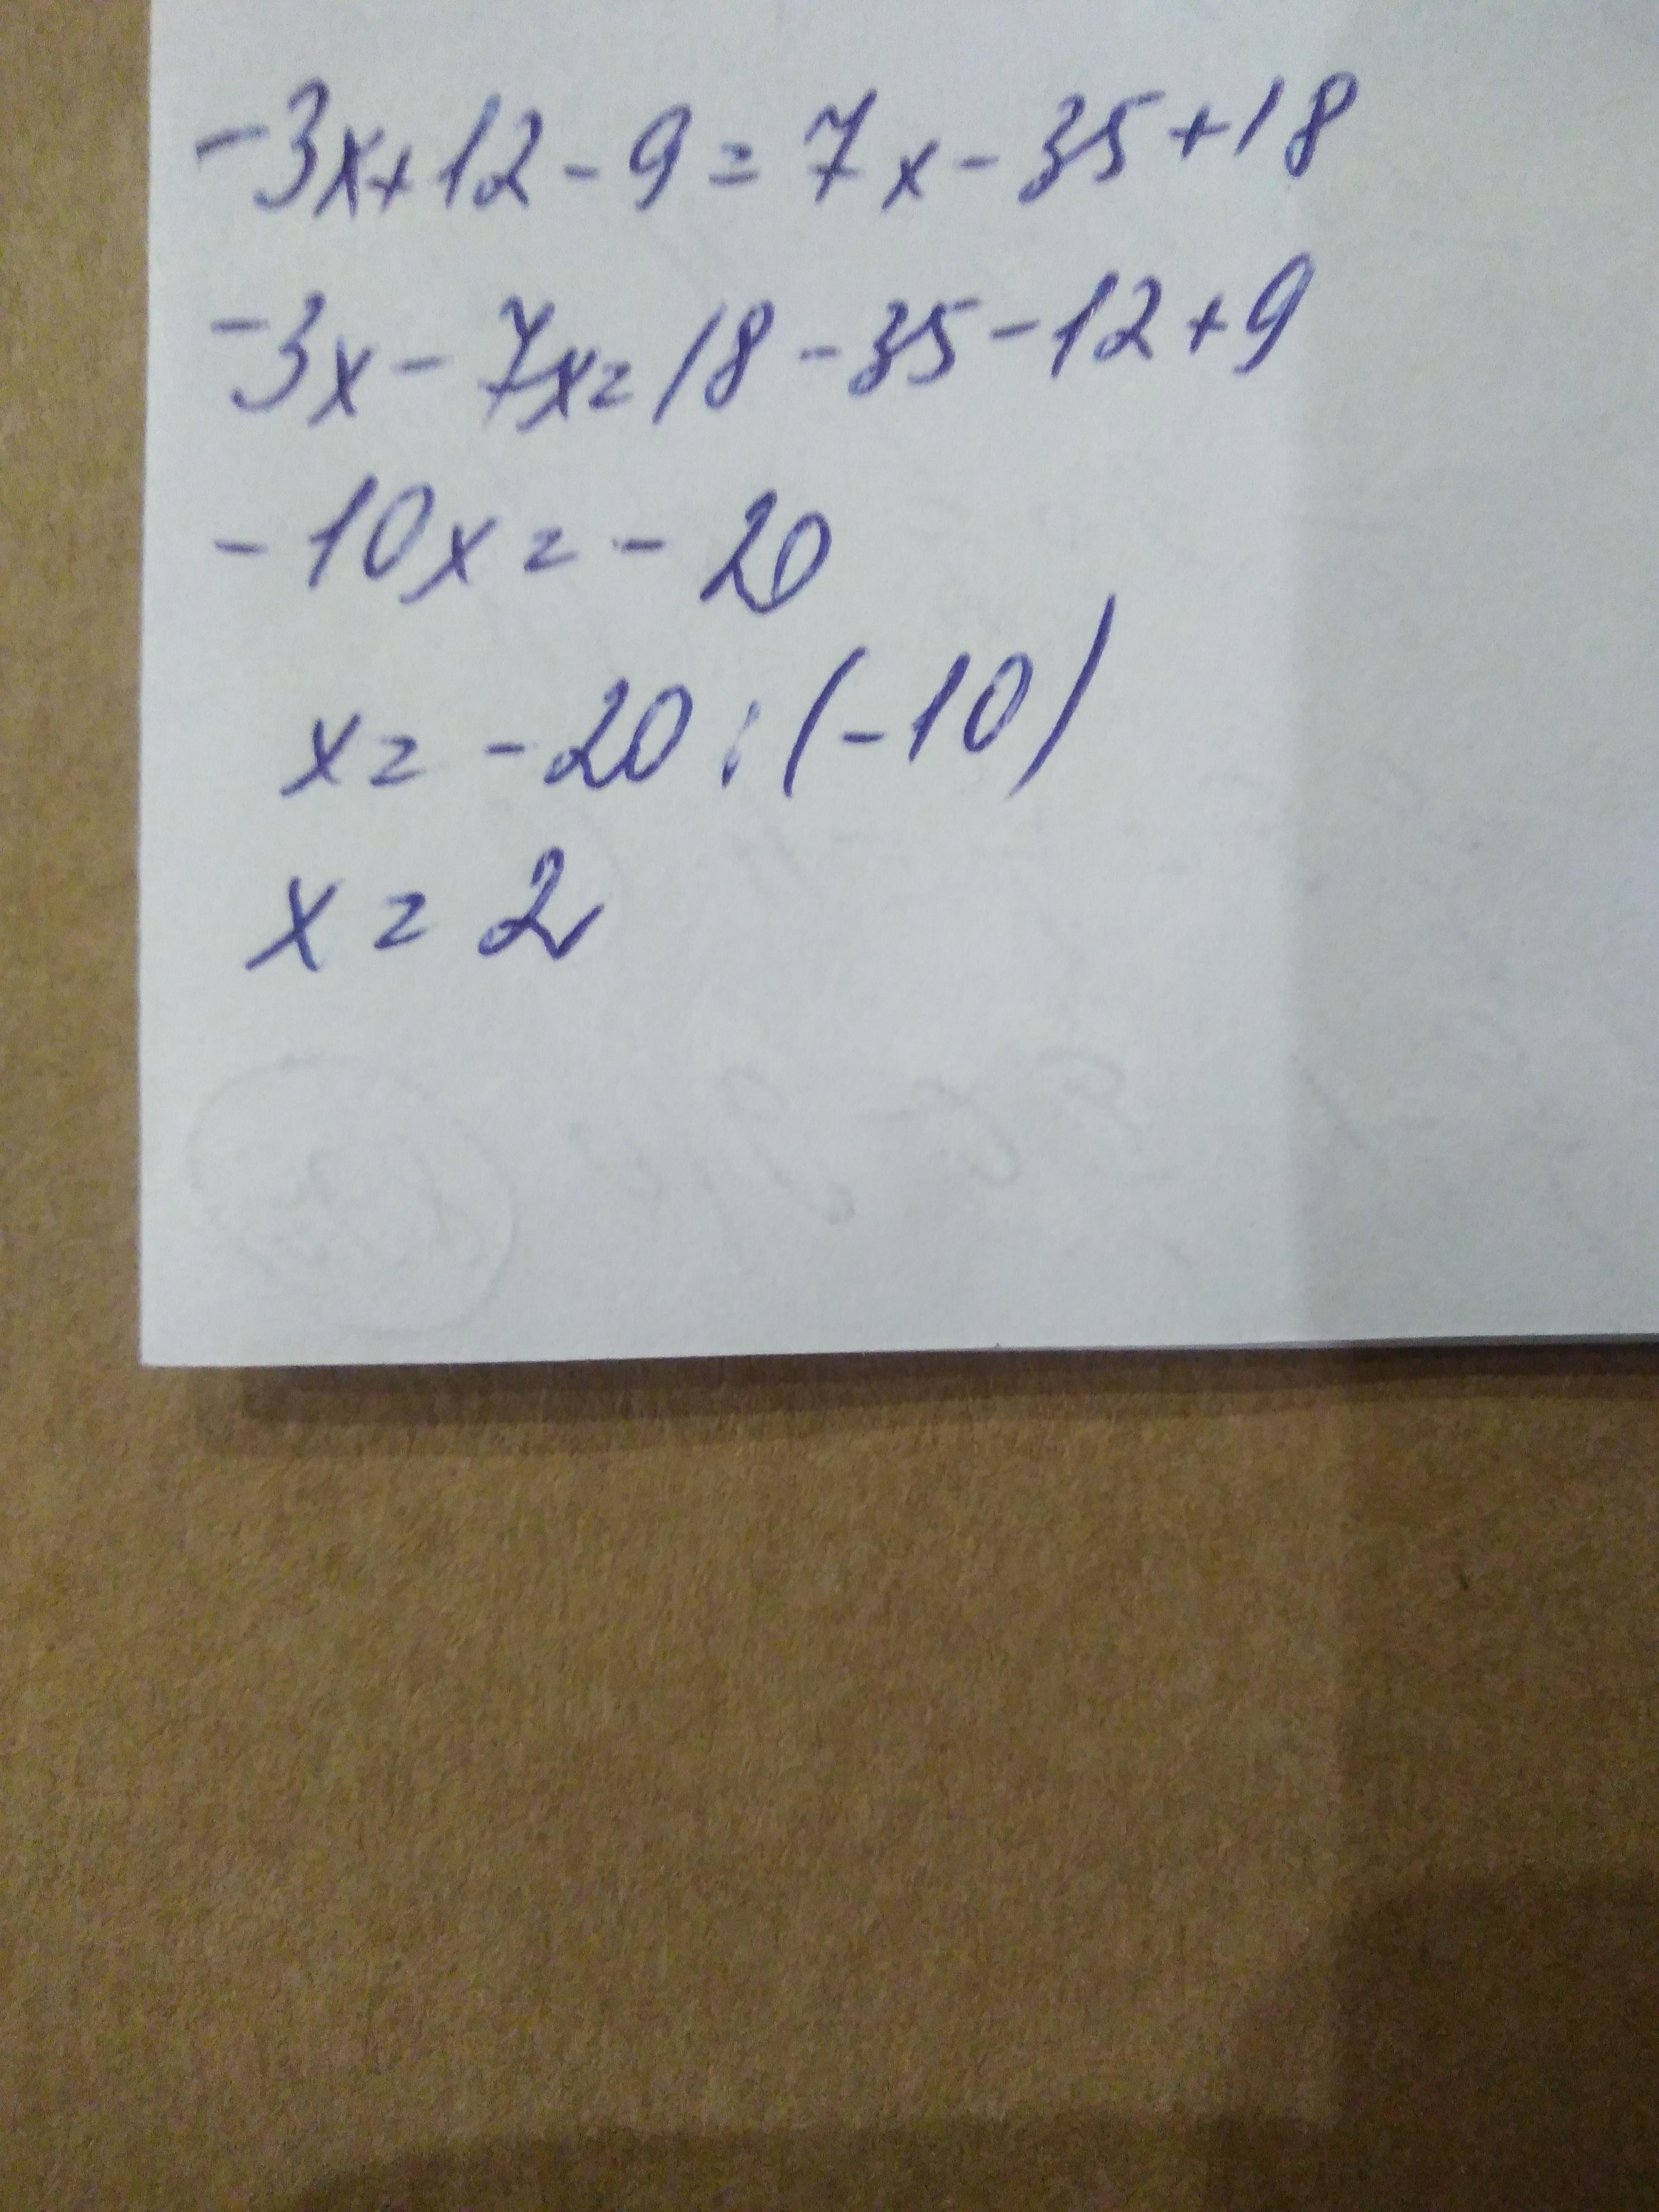 -3x+12-9=7x-35+18
-3x-7x=18-35-12+9
-10x=-20
x=-20:(-10)
x=2